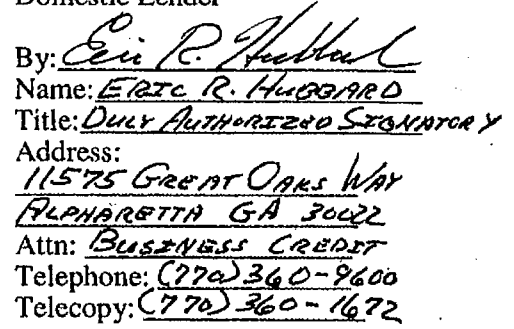 Domestic Lender
By: Eric R. Hubbard
Name: ERIC R. HUBBARD
Title: DULY AUTHORIZED SIGNATORY
Address:
11575 GREAT OAKS WAY
ALPHARETTA GA 30022
Attn: BUSINESS CREDIT
Telephone: (770) 360-9600
Telecopy: (770) 360-1672